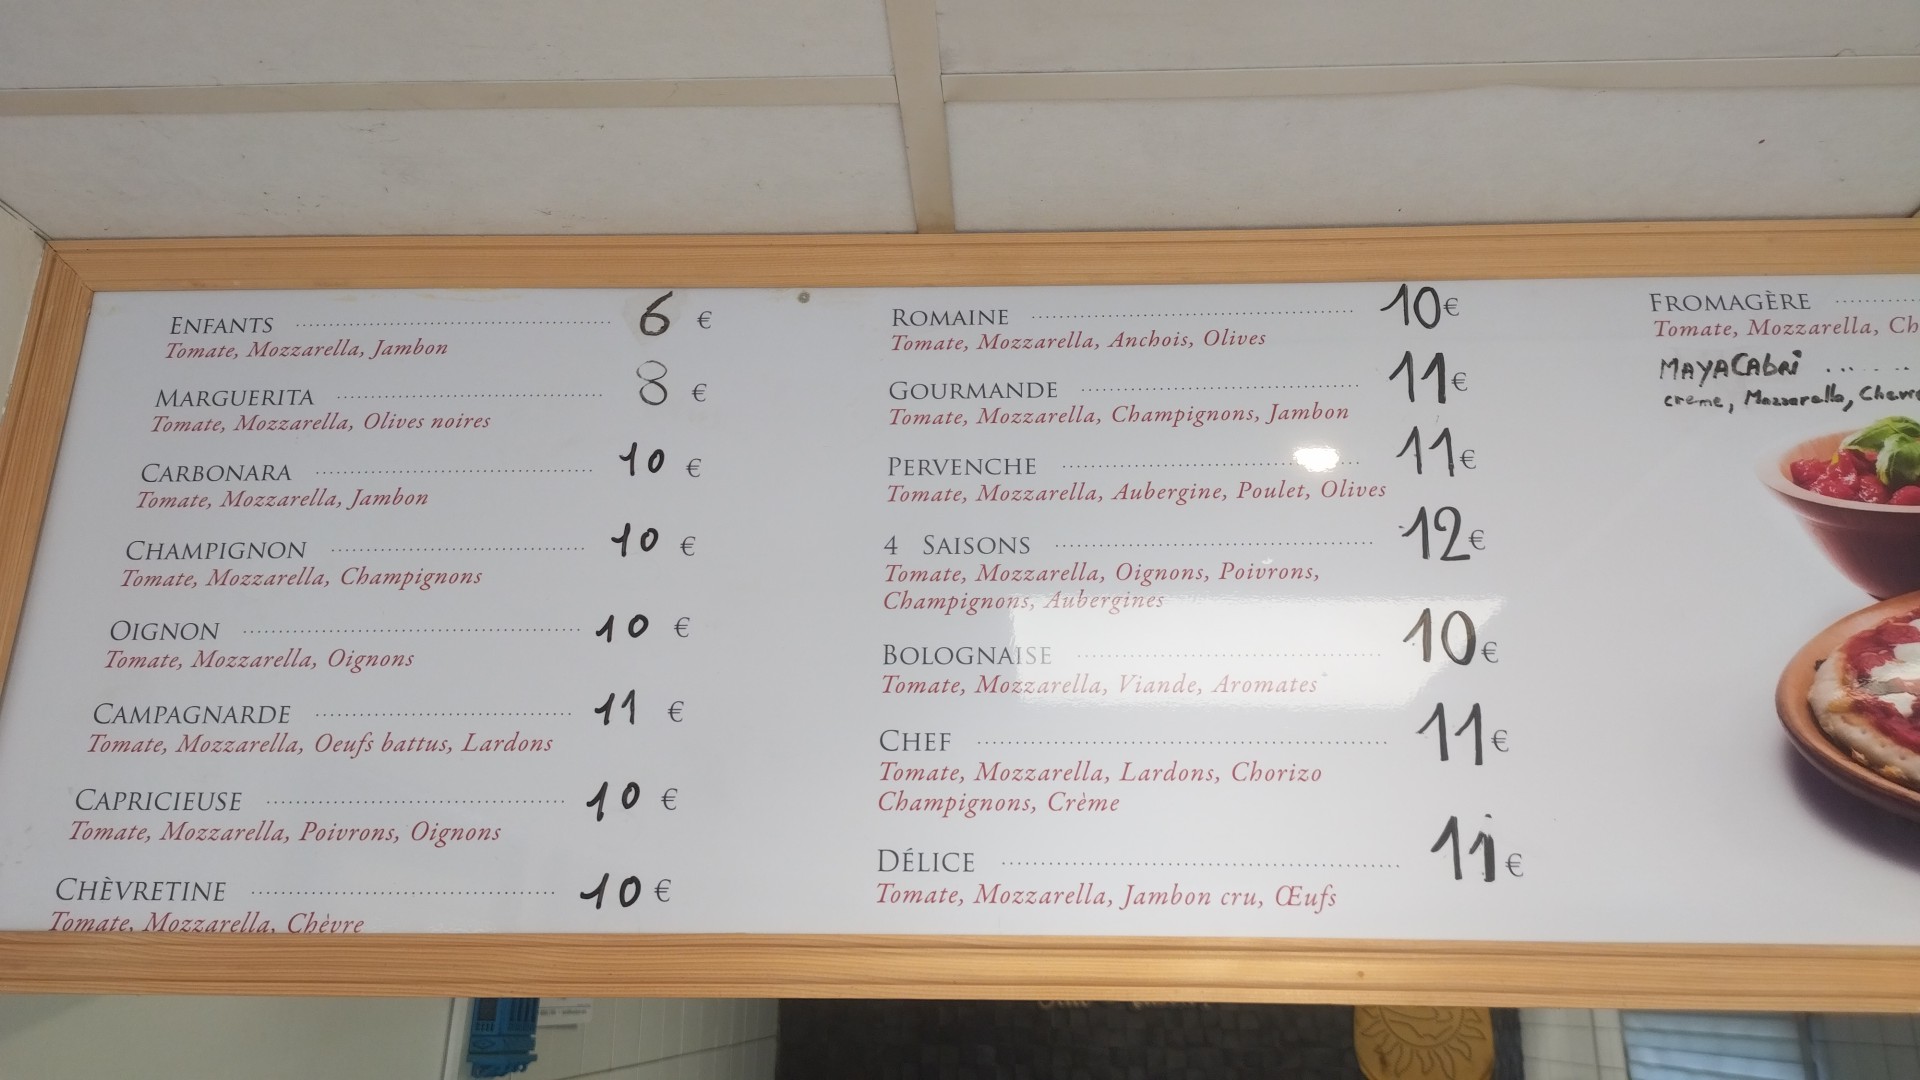 ENFANTS .......... 6 €
Tomate, Mozzarella, Jambon
MARGUERITA .......... 8 €
Tomate, Mozzarella, Olives noires
CARBONARA .......... 10 €
Tomate, Mozzarella, Jambon
CHAMPIGNON .......... 10 €
Tomate, Mozzarella, Champignons
OIGNON .......... 10 €
Tomate, Mozzarella, Oignons
CAMPAGNARDE .......... 11 €
Tomate, Mozzarella, Oeufs battus, Lardons
CAPRICIEUSE .......... 10 €
Tomate, Mozzarella, Poivrons, Oignons
CHÈVRETINE .......... 10 €
Tomate, Mozzarella, Chèvre
ROMAINE .......... 10 €
Tomate, Mozzarella, Anchois, Olives
GOURMANDE .......... 11 €
Tomate, Mozzarella, Champignons, Jambon
PERVENCHE .......... 11 €
Tomate, Mozzarella, Aubergine, Poulet, Olives
4 SAISONS .......... 12 €
Tomate, Mozzarella, Oignons, Poivrons,
Champignons, Aubergines
BOLOGNAISE .......... 10 €
Tomate, Mozzarella, Viande, Aromates
CHEF .......... 11 €
Tomate, Mozzarella, Lardons, Chorizo
Champignons, Crème
DÉLICE .......... 11 €
Tomate, Mozzarella, Jambon cru, Œufs
FROMAGÈRE ..........
Tomate, Mozzarella, Ch
MAYACAbRi ..........
creme, Mozzarella, Chevre